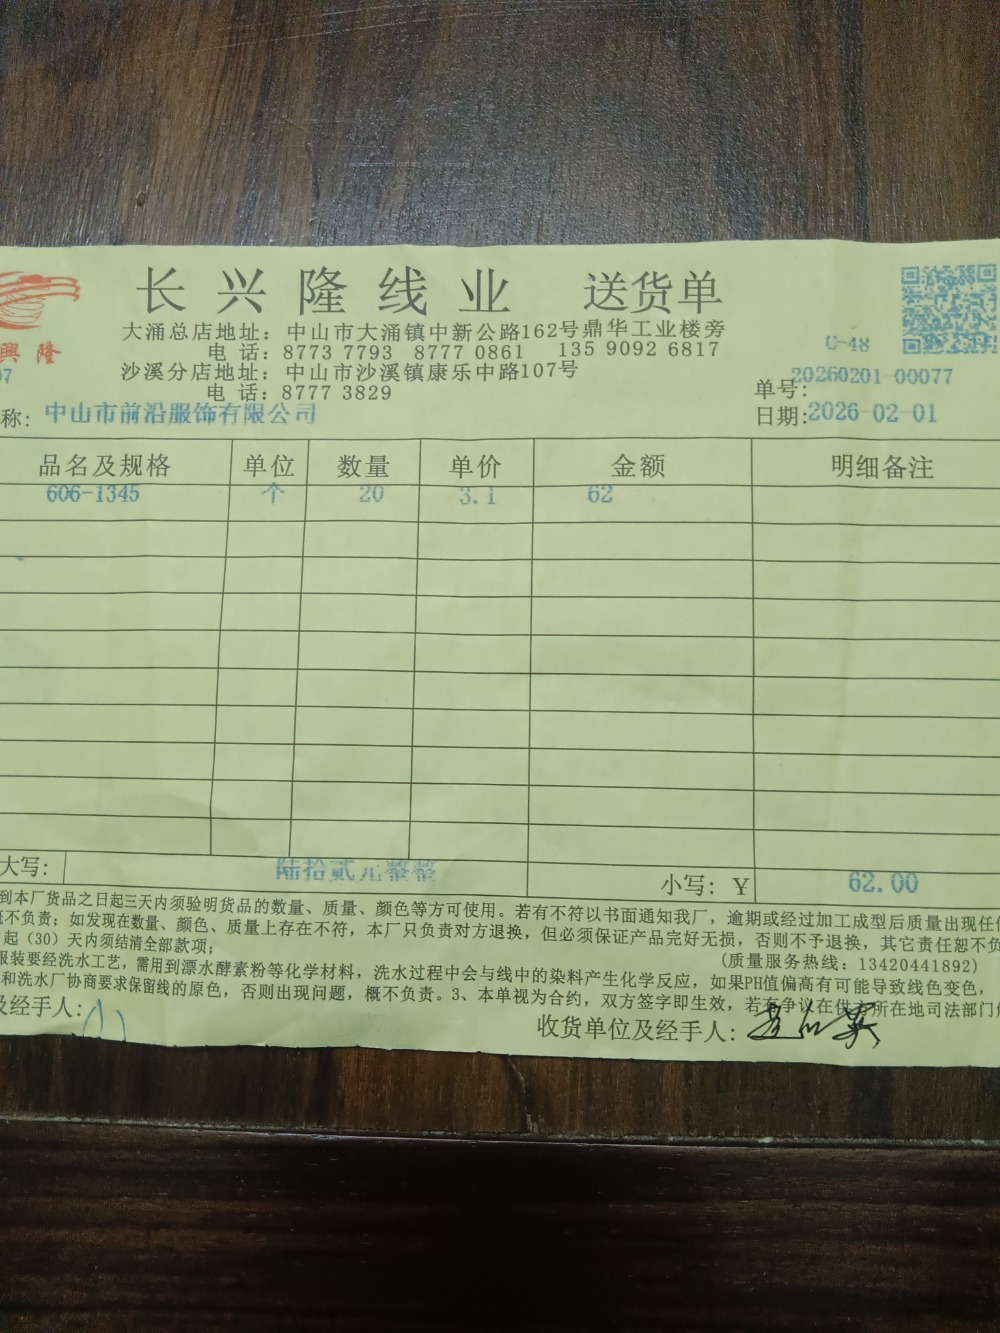 长兴隆线业 送货单
大涌总店地址：中山市大涌镇中新公路162号鼎华工业楼旁
电 话：8773 7793 8777 0861 135 9092 6817
沙溪分店地址：中山市沙溪镇康乐中路107号
电 话：8777 3829
興隆
07
C-48
单号：20260201-00077
称：中山市前沿服饰有限公司
日期：2026-02-01
品名及规格 单位 数量 单价 金额 明细备注
606-1345 个 20 3.1 62
大写： 陆拾贰元整整 小写：￥ 62.00
到本厂货品之日起三天内须验明货品的数量、质量、颜色等方可使用。若有不符以书面通知我厂，逾期或经过加工成型后质量出现任
概不负责；如发现在数量、颜色、质量上存在不符，本厂只负责对方退换，但必须保证产品完好无损，否则不予退换，其它责任恕不负
起（30）天内须结清全部款项；
(质量服务热线：13420441892)
服装要经洗水工艺，需用到漂水酵素粉等化学材料，洗水过程中会与线中的染料产生化学反应，如果PH值偏高有可能导致线色变色，
和洗水厂协商要求保留线的原色，否则出现问题，概不负责。3、本单视为合约，双方签字即生效，若有争议在供方所在地司法部门
及经手人：
收货单位及经手人：